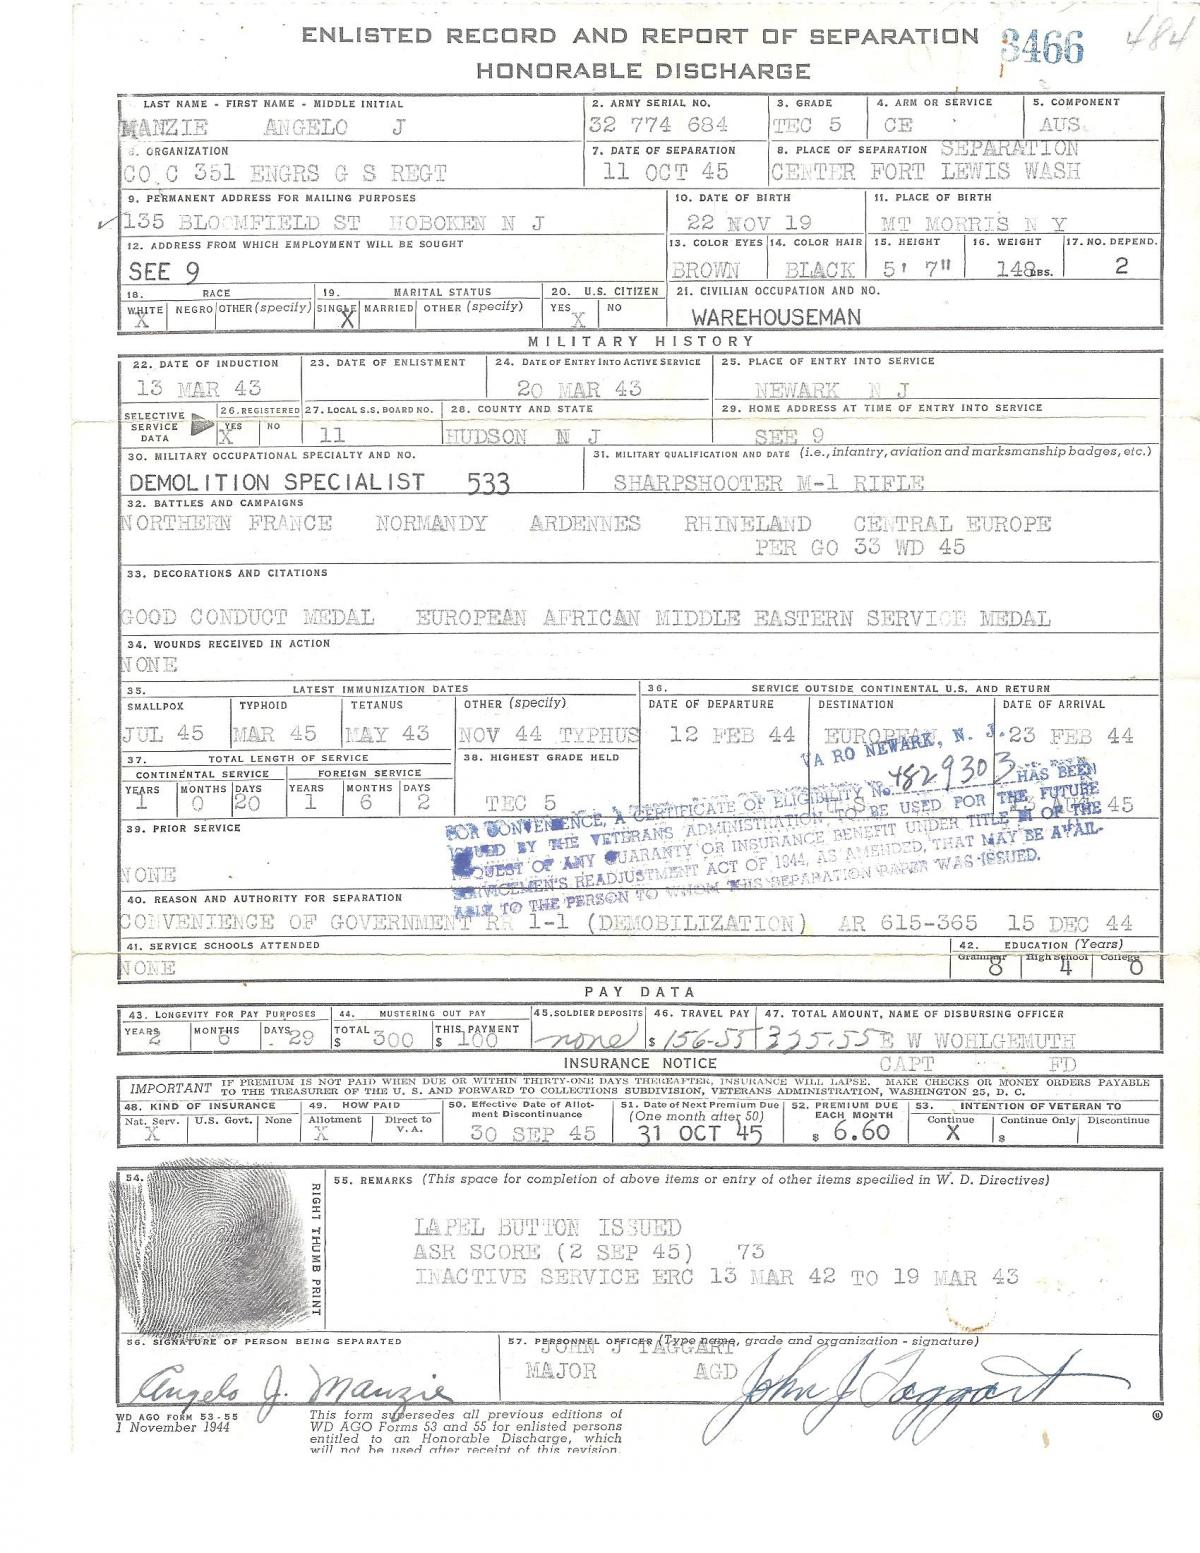 ENLISTED RECORD AND REPORT OF SEPARATION
HONORABLE DISCHARGE
3466
484
LAST NAME - FIRST NAME - MIDDLE INITIAL
MANZIE ANGELO J
2. ARMY SERIAL NO.
32 774 684
3. GRADE
TEC 5
4. ARM OR SERVICE
CE
5. COMPONENT
AUS
6. ORGANIZATION
CO C 351 ENGRS G S REGT
7. DATE OF SEPARATION
11 OCT 45
8. PLACE OF SEPARATION SEPARATION
CENTER FORT LEWIS WASH
9. PERMANENT ADDRESS FOR MAILING PURPOSES
135 BLOOMFIELD ST HOBOKEN N J
10. DATE OF BIRTH
22 NOV 19
11. PLACE OF BIRTH
MT MORRIS N Y
12. ADDRESS FROM WHICH EMPLOYMENT WILL BE SOUGHT
SEE 9
13. COLOR EYES
BROWN
14. COLOR HAIR
BLACK
15. HEIGHT
5' 7"
16. WEIGHT
148 LBS.
17. NO. DEPEND.
2
18. RACE
WHITE NEGRO OTHER (specify)
X
19. MARITAL STATUS
SINGLE MARRIED OTHER (specify)
X
20. U.S. CITIZEN
YES NO
X
21. CIVILIAN OCCUPATION AND NO.
WAREHOUSEMAN
MILITARY HISTORY
22. DATE OF INDUCTION
13 MAR 43
23. DATE OF ENLISTMENT
24. DATE OF ENTRY INTO ACTIVE SERVICE
20 MAR 43
25. PLACE OF ENTRY INTO SERVICE
NEWARK N J
SELECTIVE
SERVICE
DATA
26. REGISTERED
YES NO
X
27. LOCAL S.S. BOARD NO.
11
28. COUNTY AND STATE
HUDSON N J
29. HOME ADDRESS AT TIME OF ENTRY INTO SERVICE
SEE 9
30. MILITARY OCCUPATIONAL SPECIALTY AND NO.
DEMOLITION SPECIALIST 533
31. MILITARY QUALIFICATION AND DATE (i.e., infantry, aviation and marksmanship badges, etc.)
SHARPSHOOTER M-1 RIFLE
32. BATTLES AND CAMPAIGNS
NORTHERN FRANCE NORMANDY ARDENNES RHINELAND CENTRAL EUROPE
PER GO 33 WD 45
33. DECORATIONS AND CITATIONS
GOOD CONDUCT MEDAL EUROPEAN AFRICAN MIDDLE EASTERN SERVICE MEDAL
34. WOUNDS RECEIVED IN ACTION
NONE
35. LATEST IMMUNIZATION DATES
SMALLPOX TYPHOID TETANUS OTHER (specify)
JUL 45 MAR 45 MAY 43 NOV 44 TYPHUS
36. SERVICE OUTSIDE CONTINENTAL U.S. AND RETURN
DATE OF DEPARTURE DESTINATION DATE OF ARRIVAL
12 FEB 44 EUROPEAN 23 FEB 44
37. TOTAL LENGTH OF SERVICE
CONTINENTAL SERVICE FOREIGN SERVICE
YEARS MONTHS DAYS YEARS MONTHS DAYS
1 0 20 1 6 2
38. HIGHEST GRADE HELD
TEC 5
45
VA RO NEWARK, N. J.
FOR CONVENIENCE, A CERTIFICATE OF ELIGIBILITY No. 4829303 HAS BEEN
ISSUED BY THE VETERANS ADMINISTRATION TO BE USED FOR THE FUTURE
REQUEST OF ANY GUARANTY OR INSURANCE BENEFIT UNDER TITLE III OF THE
SERVICEMEN'S READJUSTMENT ACT OF 1944, AS AMENDED, THAT MAY BE AVAIL-
ABLE TO THE PERSON TO WHOM THIS SEPARATION PAPER WAS ISSUED.
39. PRIOR SERVICE
NONE
40. REASON AND AUTHORITY FOR SEPARATION
CONVENIENCE OF GOVERNMENT RR 1-1 (DEMOBILIZATION) AR 615-365 15 DEC 44
41. SERVICE SCHOOLS ATTENDED
NONE
42. EDUCATION (Years)
Grammar High School College
8 4 0
PAY DATA
43. LONGEVITY FOR PAY PURPOSES
YEARS MONTHS DAYS
2 6 29
44. MUSTERING OUT PAY
TOTAL THIS PAYMENT
$ 300 $ 100
45. SOLDIER DEPOSITS
none
46. TRAVEL PAY
$ 156.55
47. TOTAL AMOUNT, NAME OF DISBURSING OFFICER
335.55 E W WOHLGEMUTH
CAPT FD
INSURANCE NOTICE
IMPORTANT IF PREMIUM IS NOT PAID WHEN DUE OR WITHIN THIRTY-ONE DAYS THEREAFTER, INSURANCE WILL LAPSE. MAKE CHECKS OR MONEY ORDERS PAYABLE
TO THE TREASURER OF THE U. S. AND FORWARD TO COLLECTIONS SUBDIVISION, VETERANS ADMINISTRATION, WASHINGTON 25, D. C.
48. KIND OF INSURANCE
Nat. Serv. U.S. Govt. None
X
49. HOW PAID
Allotment Direct to V. A.
X
50. Effective Date of Allot-
ment Discontinuance
30 SEP 45
51. Date of Next Premium Due
(One month after 50)
31 OCT 45
52. PREMIUM DUE
EACH MONTH
$ 6.60
53. INTENTION OF VETERAN TO
Continue Continue Only Discontinue
X $
54.
RIGHT THUMB PRINT
55. REMARKS (This space for completion of above items or entry of other items specified in W. D. Directives)
LAPEL BUTTON ISSUED
ASR SCORE (2 SEP 45) 73
INACTIVE SERVICE ERC 13 MAR 42 TO 19 MAR 43
56. SIGNATURE OF PERSON BEING SEPARATED
Angelo J. Manzie
57. PERSONNEL OFFICER (Type name, grade and organization - signature)
JOHN J TAGGART
MAJOR AGD
John J Taggart
WD AGO FORM 53-55
1 November 1944
This form supersedes all previous editions of
WD AGO Forms 53 and 55 for enlisted persons
entitled to an Honorable Discharge, which
will not be used after receipt of this revision.